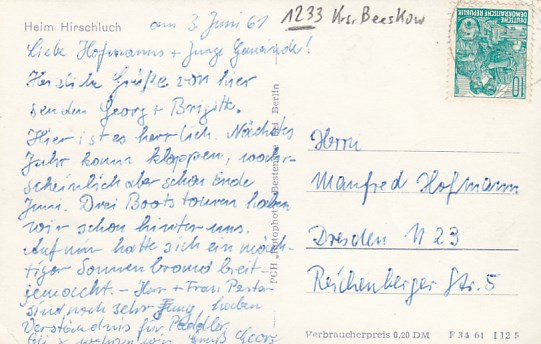 Heim Hirschluch
am 3. Juni 61
1233 Krs. Beeskow
DEUTSCHE
DEMOKRATISCHE REPUBLIK
10
Liebe Hofmanns + Junge Gemeinde!
Herzliche Grüße von hier
senden Georg + Brigitte.
Hier ist es herrlich. Nächstes
Jahr kann klappen, wahr-
scheinlich aber schon Ende
Juni. Drei Bootstouren haben
wir schon hinter uns.
Auf mir hatte sich ein mäch-
tiger Sonnenbrand breit-
gemacht. – Herr + Frau Pastor
sind noch sehr jung haben
Verständnis für Paddler.
Gruß Georg
PGH Rotophot Bestensee Berlin
Herrn
Manfred Hofmann
Dresden N 23
Reichenberger Str. 5
Verbraucherpreis 0,20 DM F 34 61 I 12 5